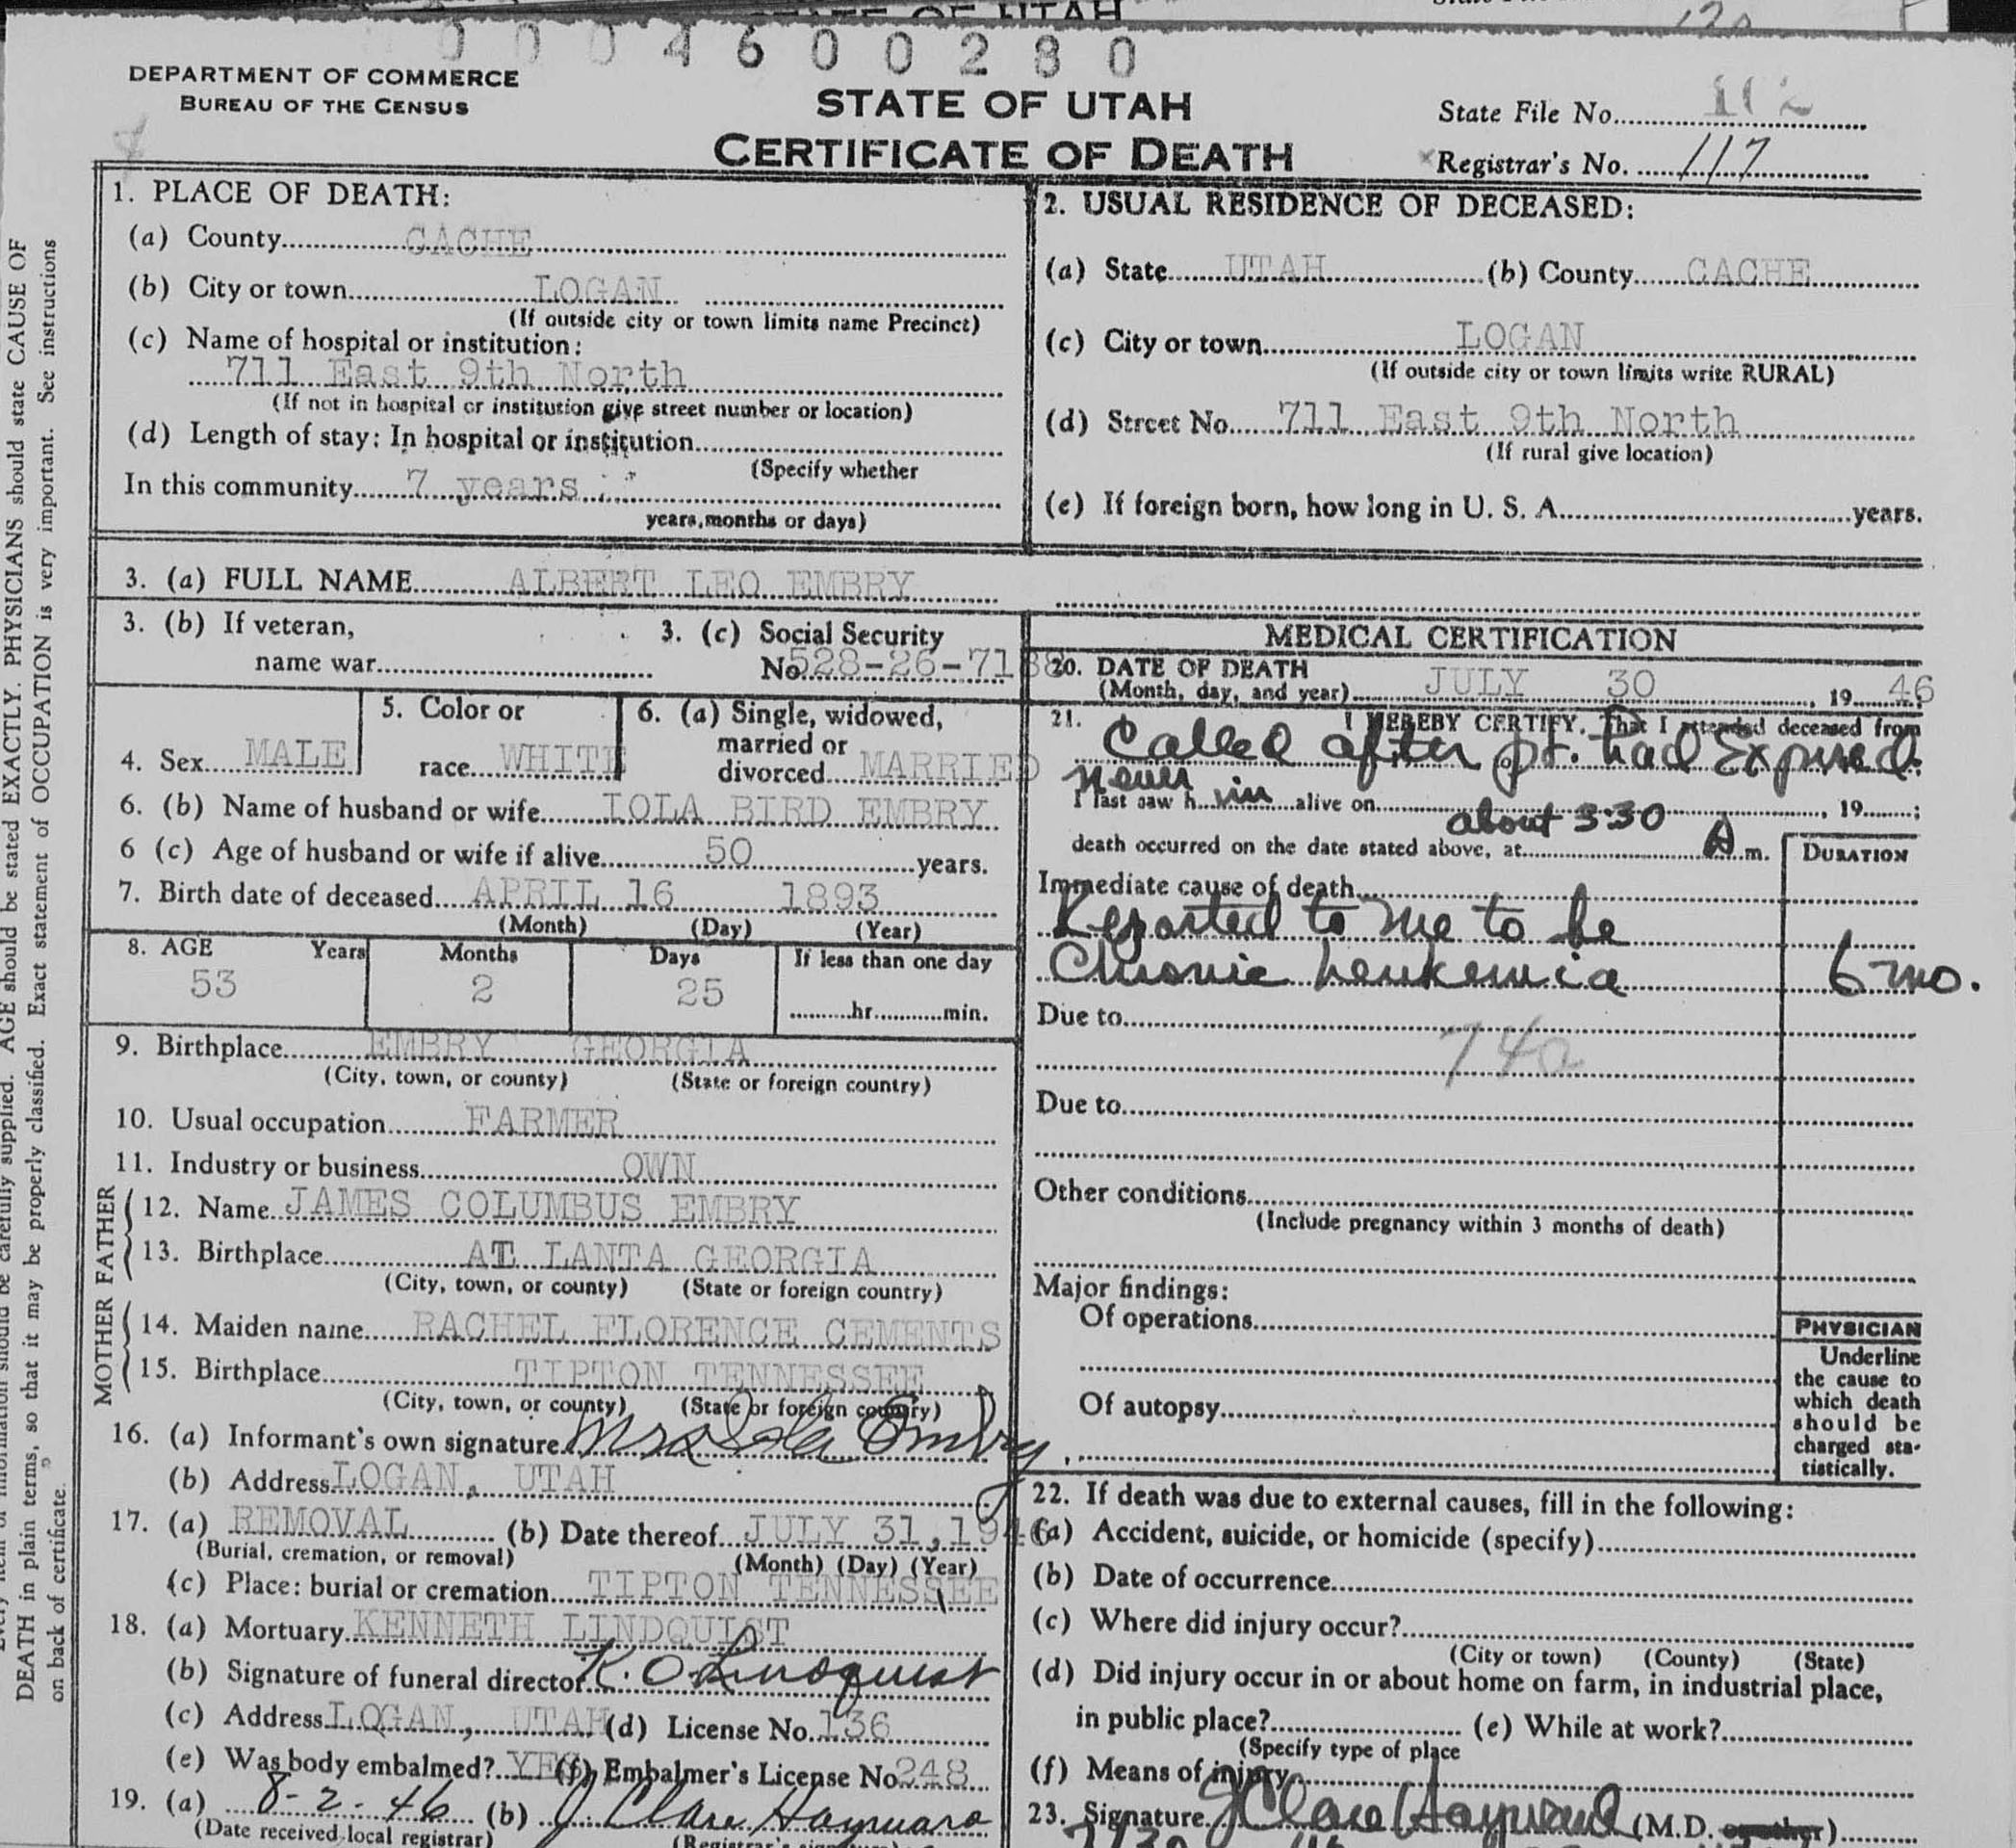 STATE OF UTAH
0 0 0 4 6 0 0 2 8 0
DEPARTMENT OF COMMERCE
BUREAU OF THE CENSUS
STATE OF UTAH
CERTIFICATE OF DEATH
State File No. 112
Registrar's No. 117
1. PLACE OF DEATH:
(a) County CACHE
(b) City or town LOGAN
(If outside city or town limits name Precinct)
(c) Name of hospital or institution:
711 East 9th North
(If not in hospital or institution give street number or location)
(d) Length of stay: In hospital or institution
(Specify whether
In this community 7 years
years, months or days)
2. USUAL RESIDENCE OF DECEASED:
(a) State UTAH (b) County CACHE
(c) City or town LOGAN
(If outside city or town limits write RURAL)
(d) Street No. 711 East 9th North
(If rural give location)
(e) If foreign born, how long in U. S. A. years.
3. (a) FULL NAME ALBERT LEO EMBRY
3. (b) If veteran,
name war
3. (c) Social Security
No. 528-26-7188
4. Sex MALE
5. Color or
race WHITE
6. (a) Single, widowed,
married or
divorced MARRIED
6. (b) Name of husband or wife IOLA BIRD EMBRY
6 (c) Age of husband or wife if alive 50 years.
7. Birth date of deceased APRIL 16 1893
(Month) (Day) (Year)
8. AGE Years Months Days If less than one day
53 2 25 hr. min.
9. Birthplace EMBRY GEORGIA
(City, town, or county) (State or foreign country)
10. Usual occupation FARMER
11. Industry or business OWN
FATHER
12. Name JAMES COLUMBUS EMBRY
13. Birthplace ATLANTA GEORGIA
(City, town, or county) (State or foreign country)
MOTHER
14. Maiden name RACHEL FLORENCE CEMENTS
15. Birthplace TIPTON TENNESSEE
(City, town, or county) (State or foreign country)
16. (a) Informant's own signature Mrs Embry
(b) Address LOGAN, UTAH
17. (a) REMOVAL (b) Date thereof JULY 31, 1946
(Burial, cremation, or removal) (Month) (Day) (Year)
(c) Place: burial or cremation TIPTON TENNESSEE
18. (a) Mortuary KENNETH LINDQUIST
(b) Signature of funeral director K. O. Lindquist
(c) Address LOGAN, UTAH (d) License No. 136
(e) Was body embalmed? YES (f) Embalmer's License No. 248
19. (a) 8-2-46 (b) J. Clare Hayward
(Date received local registrar) (Registrar's signature)
MEDICAL CERTIFICATION
20. DATE OF DEATH
(Month, day, and year) JULY 30, 1946
21. I HEREBY CERTIFY, That I attended deceased from
Called after pt. had Expired.
never
I last saw h im alive on , 19 ;
about 3:30
death occurred on the date stated above, at A m.
DURATION
Immediate cause of death
Reported to me to be
Chronic Leukemia 6 mo.
Due to
74a
Due to
Other conditions
(Include pregnancy within 3 months of death)
Major findings:
Of operations
Of autopsy
PHYSICIAN
Underline
the cause to
which death
should be
charged sta-
tistically.
22. If death was due to external causes, fill in the following:
(a) Accident, suicide, or homicide (specify)
(b) Date of occurrence
(c) Where did injury occur?
(City or town) (County) (State)
(d) Did injury occur in or about home on farm, in industrial place,
in public place? (e) While at work?
(Specify type of place
(f) Means of injury
23. Signature J Clare Hayward (M.D. or other)
carefully supplied. AGE should be stated EXACTLY. PHYSICIANS should state CAUSE OF
DEATH in plain terms, so that it may be properly classified. Exact statement of OCCUPATION is very important. See instructions
on back of certificate.